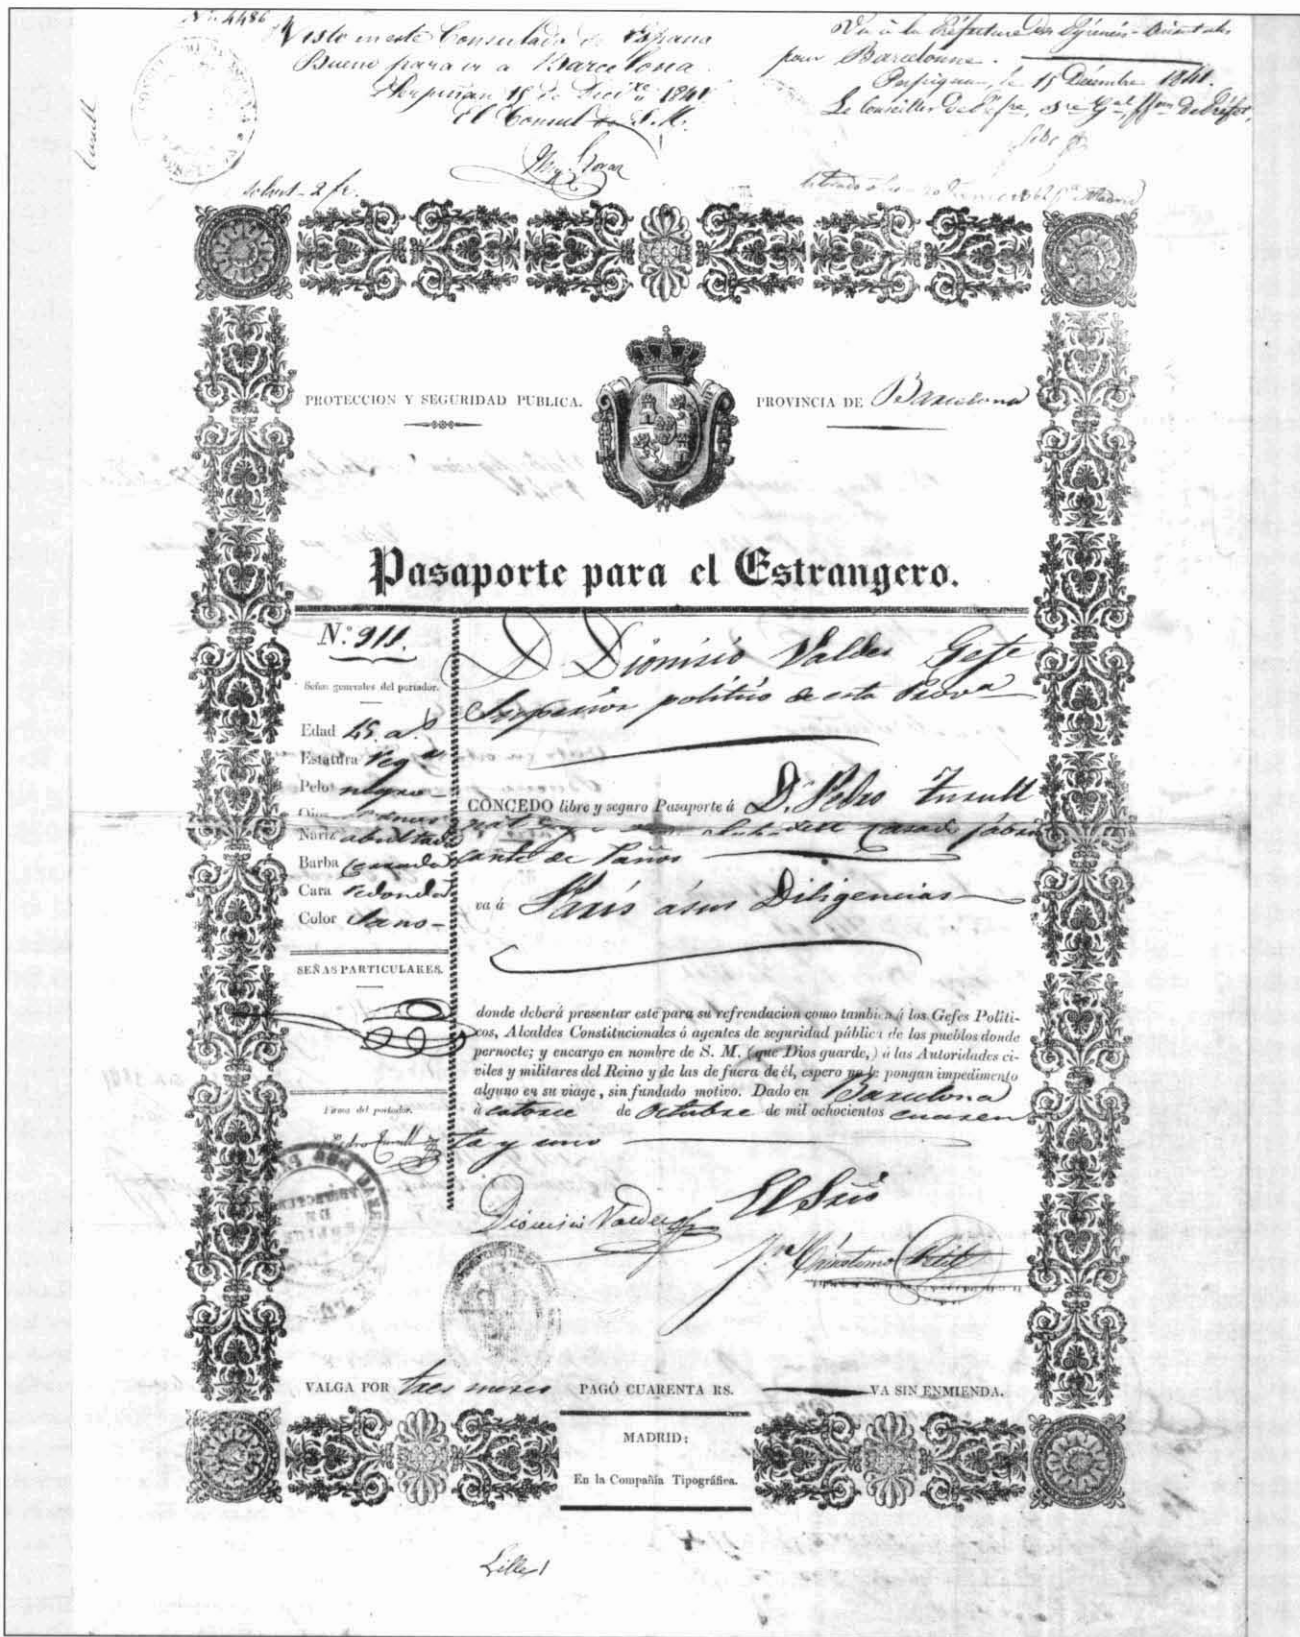 Nº 4486
Visto en este Consulado de España
Bueno para ir a Barcelona
Perpiñan 15 de Diciᵉ 1841
El Consul de S. M.
Vu à la Préfecture des Pyrénées-Orientales
pour Barcelonne.
Perpignan, le 15 Décembre 1841.
Le Conseiller de Pʳᵉ
PROTECCION Y SEGURIDAD PUBLICA.
PROVINCIA DE Barcelona
Pasaporte para el Estrangero.
N.º 911.
Señas generales del portador.
Edad 45 a.ˢ
Estatura reg.ʳ
Pelo negro
Ojos
Nariz abultada
Barba cerrada
Cara redonda
Color Sano
SEÑAS PARTICULARES.
Firma del portador.
Pedro Turull
D Dionisio Valdes Gefe
Superior politico de esta Provᵃ
CONCEDO libre y seguro Pasaporte á D. Pedro Turull
casado fabri
cante de Paños
va á Paris á sus Diligencias
donde deberá presentar este para su refrendacion como tambien á los Gefes Políti-
cos, Alcaldes Constitucionales ó agentes de seguridad pública de los pueblos donde
pernocte; y encargo en nombre de S. M. (que Dios guarde,) á las Autoridades ci-
viles y militares del Reino y de las de fuera de él, espero no le pongan impedimento
alguno en su viage, sin fundado motivo. Dado en Barcelona
á catorce de Octubre de mil ochocientos cuaren
ta y uno
Dionisio Valdes
El Srio
VALGA POR tres meses
PAGÓ CUARENTA RS.
VA SIN ENMIENDA.
MADRID:
En la Compañia Tipográfica.